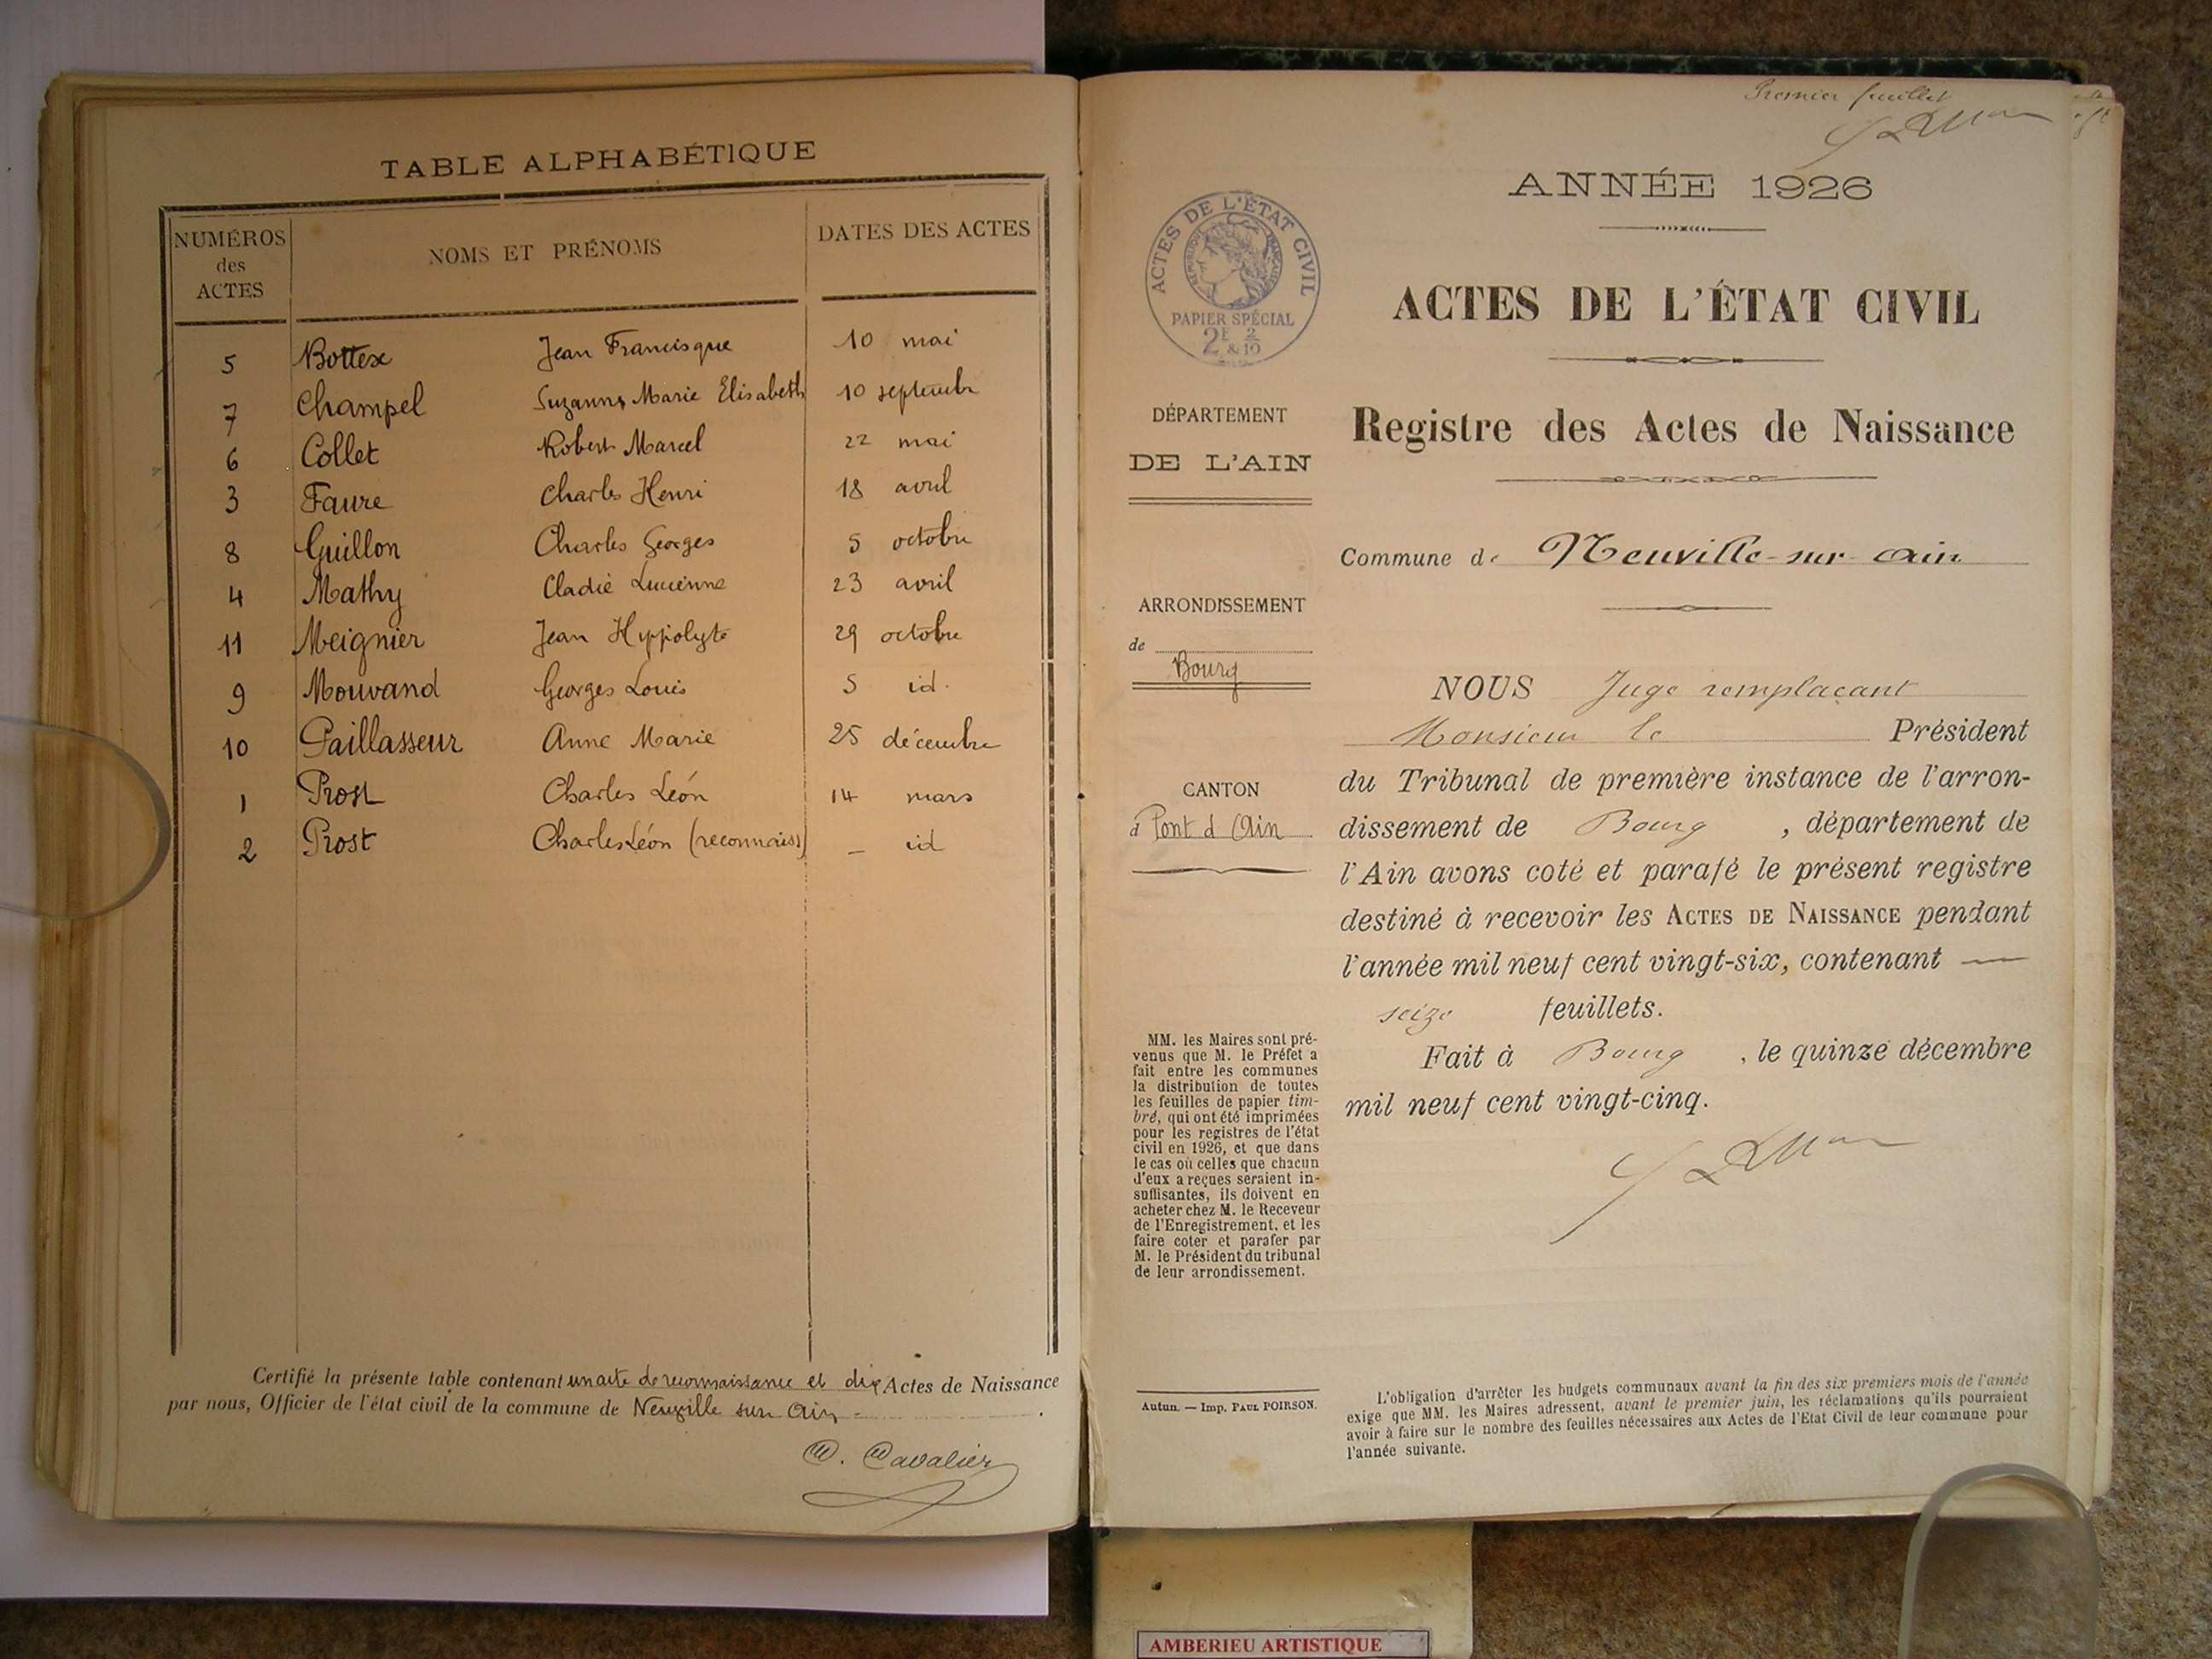 TABLE ALPHABÉTIQUE
NUMÉROS des ACTES NOMS ET PRÉNOMS DATES DES ACTES
5 Bottex Jean Francisque 10 mai
7 Champel Suzanne Marie Elisabeth 10 septembre
6 Collet Robert Marcel 22 mai
3 Faure Charles Henri 18 avril
8 Guillon Charles Georges 5 octobre
4 Mathy Cladie Lucienne 23 avril
11 Meignier Jean Hyppolyte 29 octobre
9 Mouvand Georges Louis 5 id.
10 Paillasseur Anne Marie 25 décembre
1 Prost Charles Léon 14 mars
2 Prost Charles Léon (reconnaiss) — id
Certifié la présente table contenant un acte de reconnaissance et dix Actes de Naissance
par nous, Officier de l'état civil de la commune de Neuville sur Ain
Cavalier
Premier feuillet
ANNÉE 1926
ACTES DE L'ÉTAT CIVIL
RÉPUBLIQUE FRANÇAISE
PAPIER SPÉCIAL
2F 2
& 10
ACTES DE L'ÉTAT CIVIL
Registre des Actes de Naissance
DÉPARTEMENT
DE L'AIN
Commune de Neuville-sur-Ain
ARRONDISSEMENT
de
Bourg
CANTON
d Pont d Ain
NOUS Juge remplaçant
Monsieur le Président
du Tribunal de première instance de l'arron-
dissement de Bourg , département de
l'Ain avons coté et parafé le présent registre
destiné à recevoir les ACTES DE NAISSANCE pendant
l'année mil neuf cent vingt-six, contenant —
seize feuillets.
Fait à Bourg , le quinze décembre
mil neuf cent vingt-cinq.
MM. les Maires sont pré-
venus que M. le Préfet a
fait entre les communes
la distribution de toutes
les feuilles de papier tim-
bré, qui ont été imprimées
pour les registres de l'état
civil en 1926, et que dans
le cas où celles que chacun
d'eux a reçues seraient in-
suffisantes, ils doivent en
acheter chez M. le Receveur
de l'Enregistrement, et les
faire coter et parafer par
M. le Président du tribunal
de leur arrondissement.
Autun. — Imp. PAUL POIRSON.
L'obligation d'arrêter les budgets communaux avant la fin des six premiers mois de l'année
exige que MM. les Maires adressent, avant le premier juin, les réclamations qu'ils pourraient
avoir à faire sur le nombre des feuilles nécessaires aux Actes de l'Etat Civil de leur commune pour
l'année suivante.
AMBERIEU ARTISTIQUE